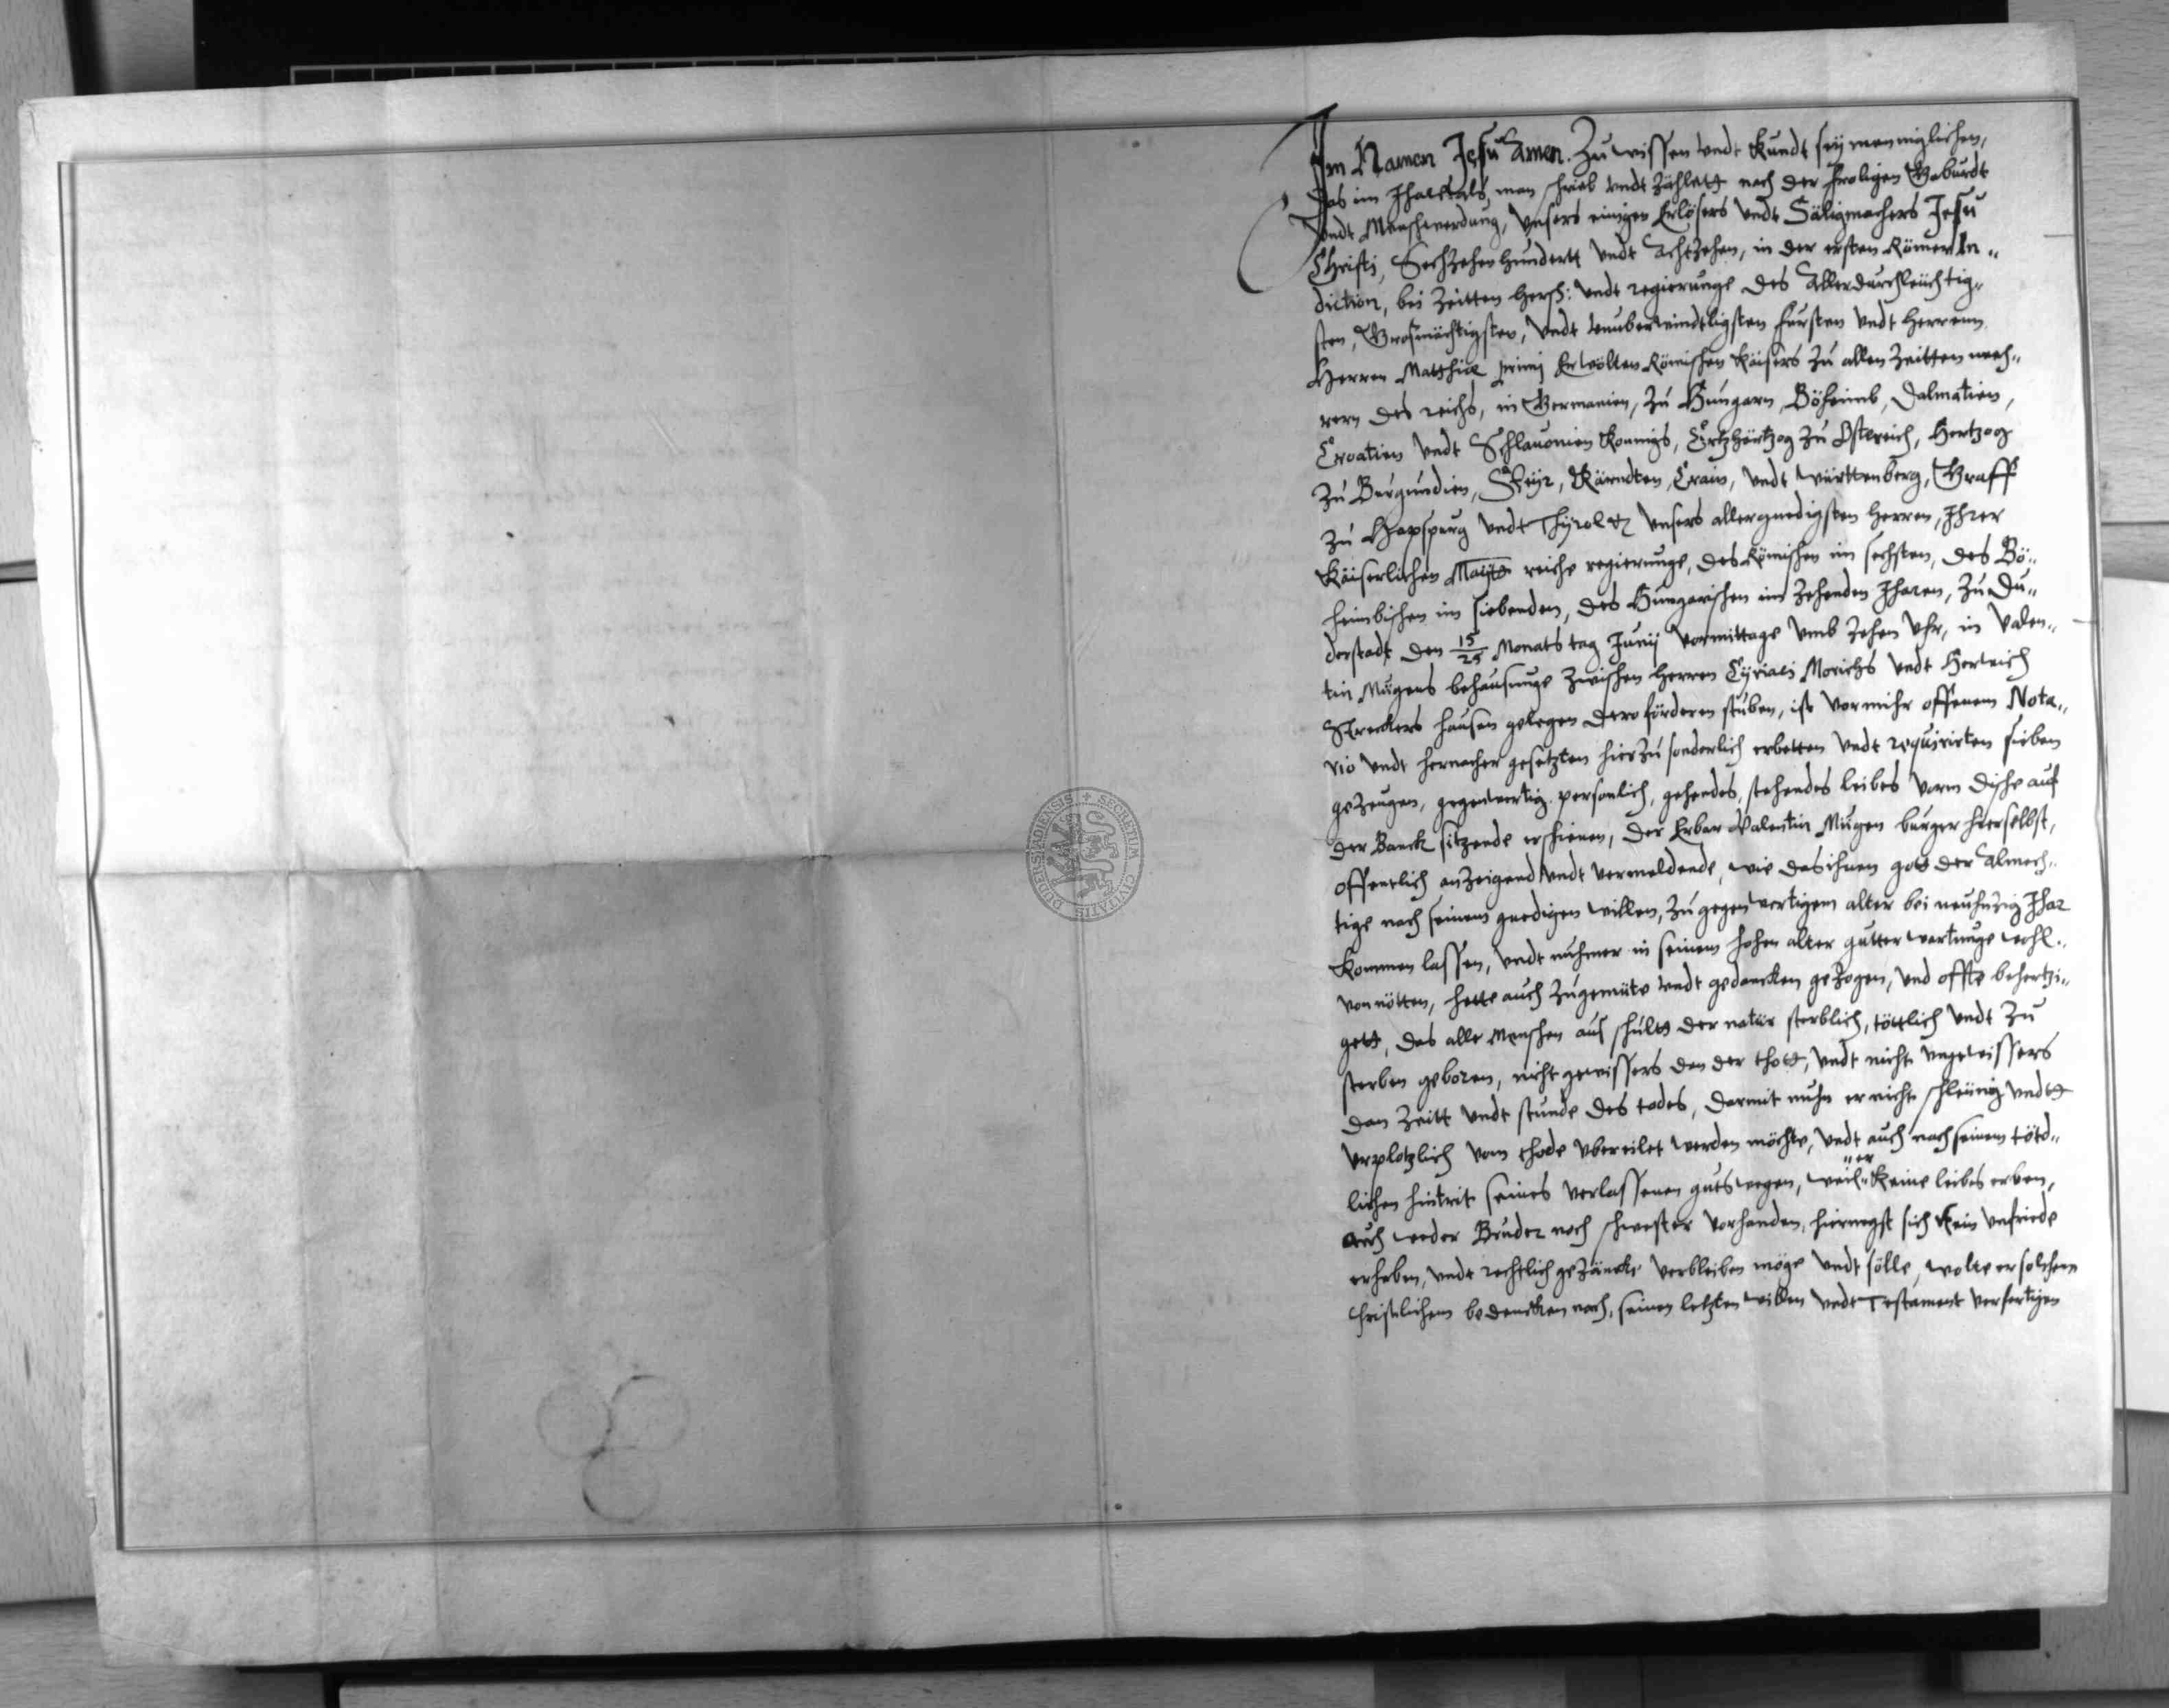 Im Namen Jesu Amen. Zu wissen undt kundt seÿ menniglichen,
Das im Jhar als man schrieb undt zahlett nach der froligen Geburdt
undt Menschwerdung, Unsers einigen Erlösers undt Säligmachers Jesu
Christi, Sechzehenhundertt undt Achtzehen, in der ersten Römer In„
diction, bei Zeitten hersch: undt regierunge des Allerdurchleuchtig„
sten, Grosmächtigsten, undt unuberwindtligsten fursten undt Herrenn
Herren Matthiæ primj Erwölten Römischen Käisers zu allen Zeitten meh„
rern des reichs, in Germanien, zu Hungarn, Böheimb, Dalmatien,
Croatien undt Schlavonien Konnigs, Ertzhertzog zu Östereich, Hertzog
zu Burgundien, Steÿr, Kärndten, Crain, undt Württenberg, Graff
zu Hapspurg undt Thÿrol &c. unsers allergnedigsten Herren, Ihrer
Käiserlichen Maÿtt reiche regierunge, des Römischen im sechsten, des Bö„
heimbischen im siebenden, des Hungarischen im zehenden Jharen, zu Du„
derstadt den 15/25 Monats tag Junÿ vormittage umb zehen Uhr, in Valen„
tin Mügens behausunge zwischen Herren Cÿriaci Morichs undt Henrich
Streckers hausen gelegen dero förderen stuben, ist vor mihr offenem Nota„
rio undt hernacher gesetzten hierzu sonderlich erbetten undt requirirten sieben
gezeugen, gegenwertig personlich, gehendes, stehendes leibes vorm dische auf
der Banck sitzende erschienen, der Erbar Valentin Mügen burger hierselbst,
offentlich anzeigend undt vermeldende, wie das ihnen gott der Almech„
tige nach seinem gnedigen willen, zu gegenwertigem alter bei neuhnzig Jhar
kommen lassen, undt nuhmer in seinem hohen alter gutter wartunge wohl
von nötten, hette auch zugemüte undt gedancken gezogen, und offte behertzi„
gett, das alle menschen aus schultt der natur sterblich, töttlich undt zu
sterben geboren, nicht gewissers den der thott, undt nicht ungewissers
dan Zeitt undt stunde des todes, darmit nuhn er nicht schleunig undtt
urplotzlich vom thode ubereilet werden möchte, undt auch nach seinem tötd„
lichen hintrit seines verlassenen guts wegen, weil er keine leibes erben,
auch weder Bruder noch schwester vorhanden, hiernegst sich kein unfriede
erheben, undt rechtlich gezäncke verbleiben möge undt sölle, wolte er solchem
christlichem bedencken nach, seinen letzten willen undt Testament verfertigen
SECRETUM CIVITATIS DUDERSTADIENSIS